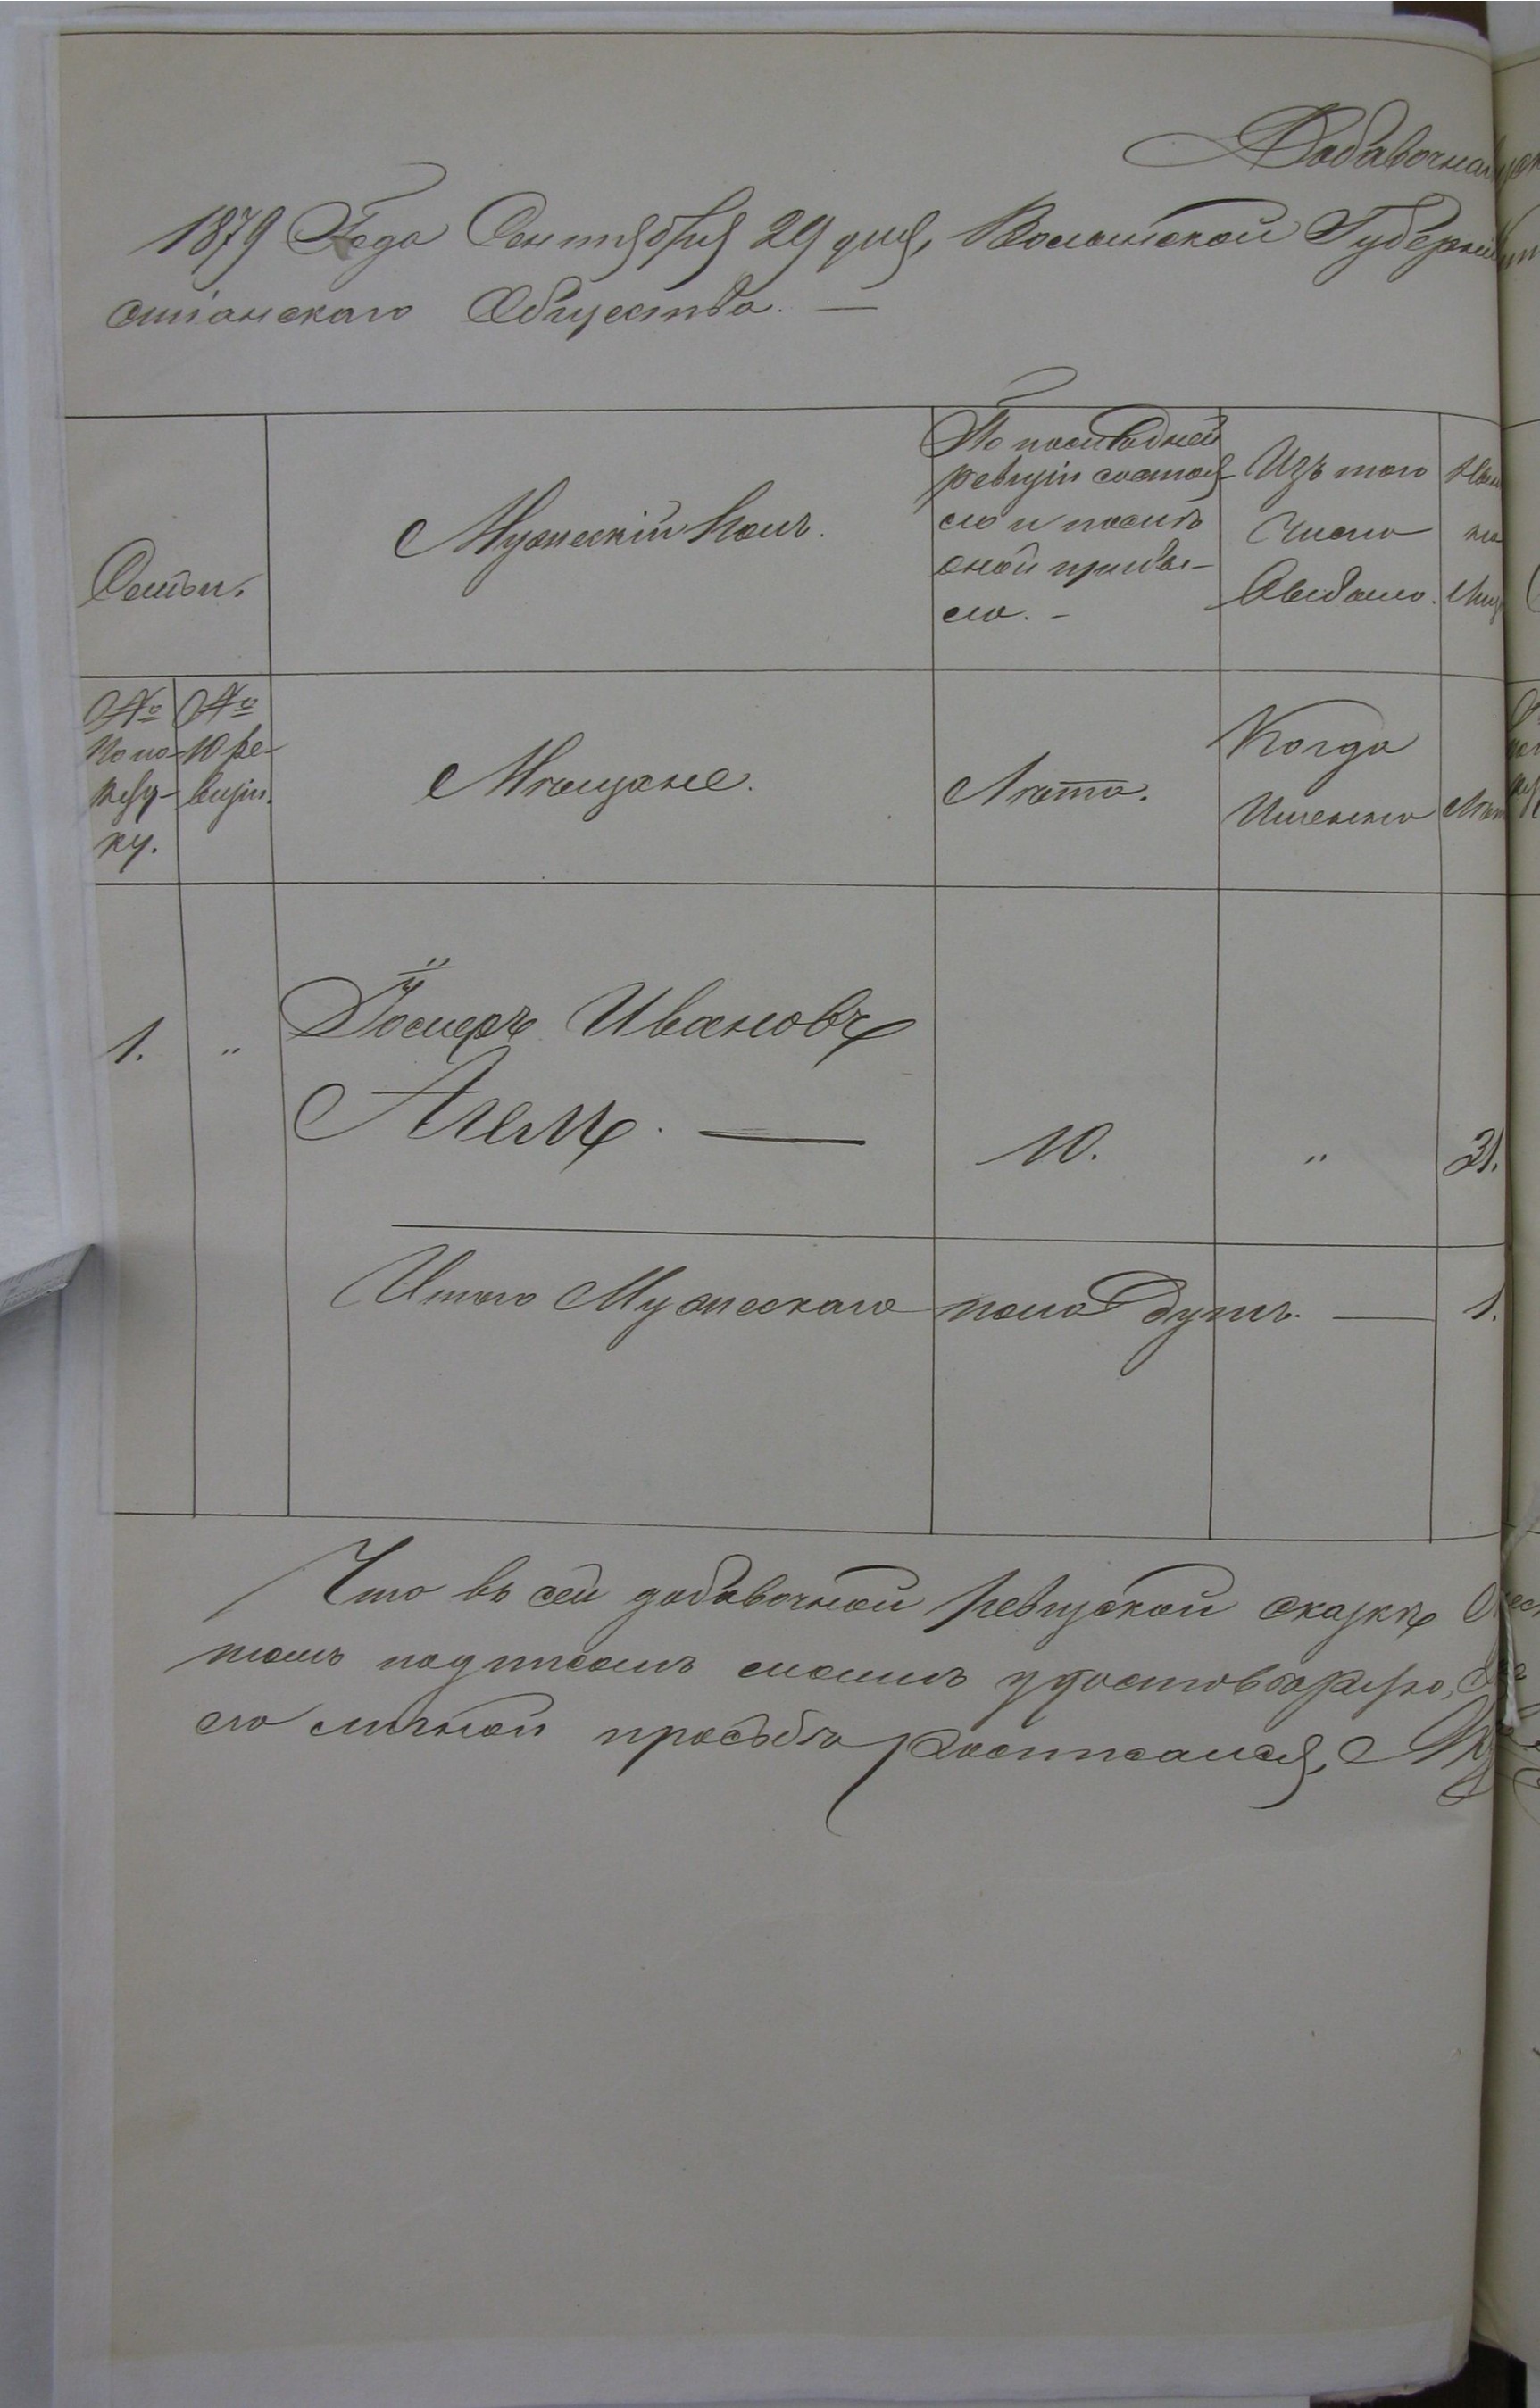 Добавочная
1879 Года Сентября 29 дня, Волынской Губерніи
стіанскаго Общества. —
Семьи.
Мужескій Полъ.
По последней
ревизіи состоя-
ло и послѣ
оной прибы-
ло. -
Изъ того
Числа
Выбыло.
№
По по-
рядку-
ку.
№
10 ре-
визіи.
Мѣщане.
Лѣта.
Когда
Именно
Лѣт
1. " Іосифъ Ивановъ
10. " 31.
Итого Мужескаго пола душъ. — 1.
Что въ сей добавочной ревизской сказкѣ
томъ подписомъ моимъ удостовѣряю,
его личной просьбѣ росписался,